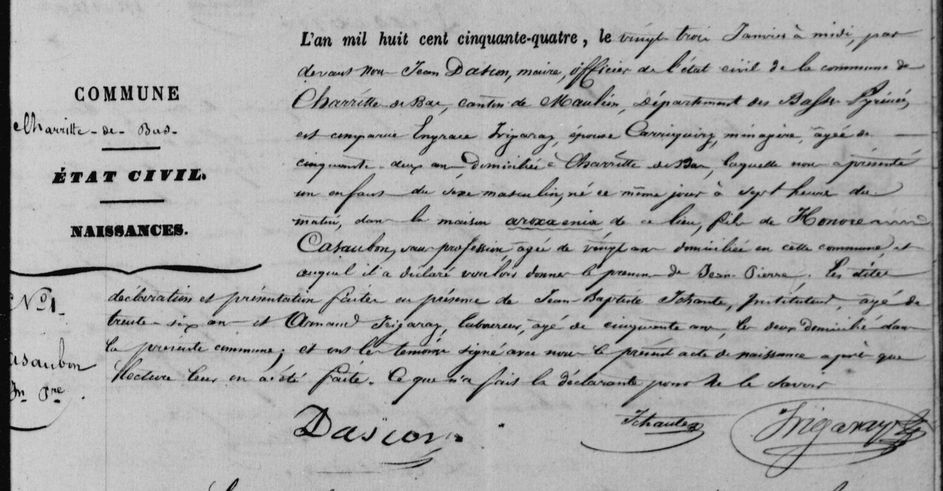 L'an mil huit cent cinquante-quatre, le vingt trois Janvier à midi, par
devant nous Jean Dascon, maire, officier de l'état civil de la commune de
COMMUNE
Charritte de Bas, canton de Mauléon, Département des Basses Pyrénées
Charritte-de-Bas
est comparue Engrace Irigaray, épouse Carriquiry, ménagère, agée de
cinquante deux ans, domiciliée à Charritte de Bas, laquelle nous a présenté
ÉTAT CIVIL.
un enfant du sexe masculin, né ce même jour à sept heures du
matin, dans la maison aroxaenia de ce lieu, fils de Honoré
NAISSANCES.
Casaubon, sans profession, agée de vingt ans domiciliée en cette commune, et
auquel il a déclaré vouloir donner le prénom de Jean Pierre. Les dites
No 1
déclaration et présentation faites en présence de Jean Baptiste Ichante, Instituteur, agé de
trente six ans et Armand Irigaray, laboureur, agé de cinquante ans, les deux domiciliés dans
Casaubon
la présente commune; et ont les témoins signé avec nous le présent acte de naissance après que
Jn Pre
lecture leur en a été faite. Ce que n'a fait la déclarante pour ne le savoir
Dascon Ichante Irigaray